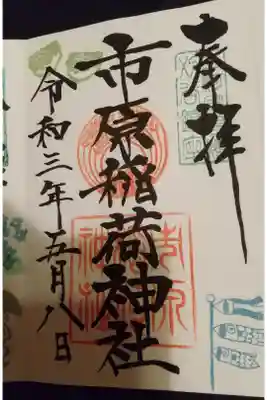 奉拝
市原稲荷神社
令和三年五月八日